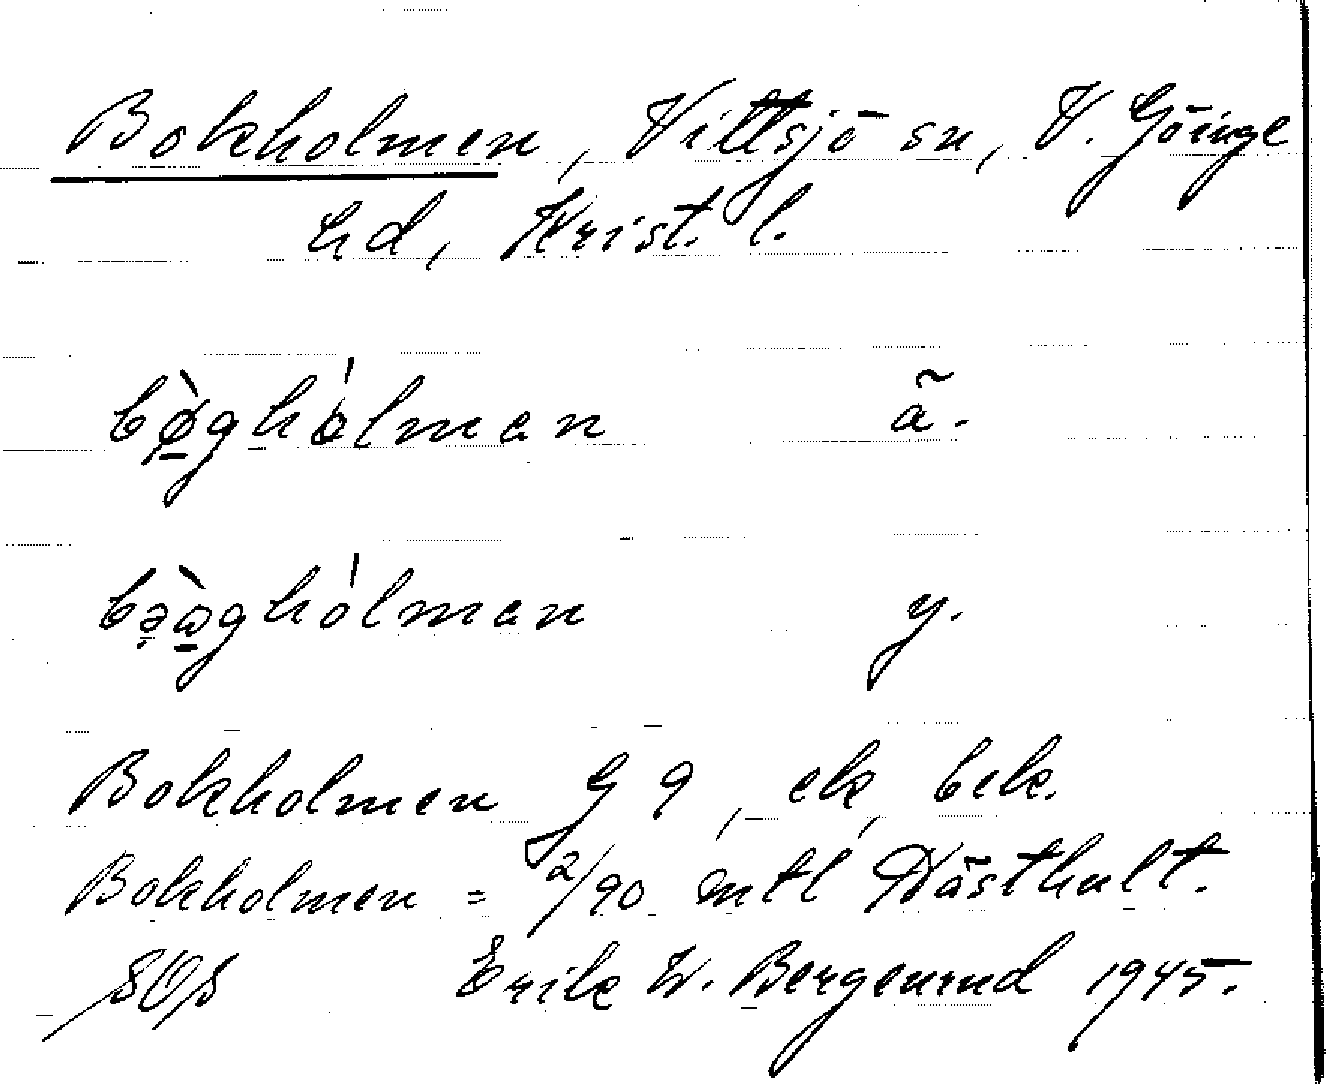 Bokholmen, Vittsjö sn, V. Göinge
hd, Krist. l.
bø̀ghólman ä̃.
bəàghólman y.
Bokholmen G 9, ek, bek.
Bokholmen = 2/90 mtl Hästhult.
SOS Erik W. Bergenrud 1945.